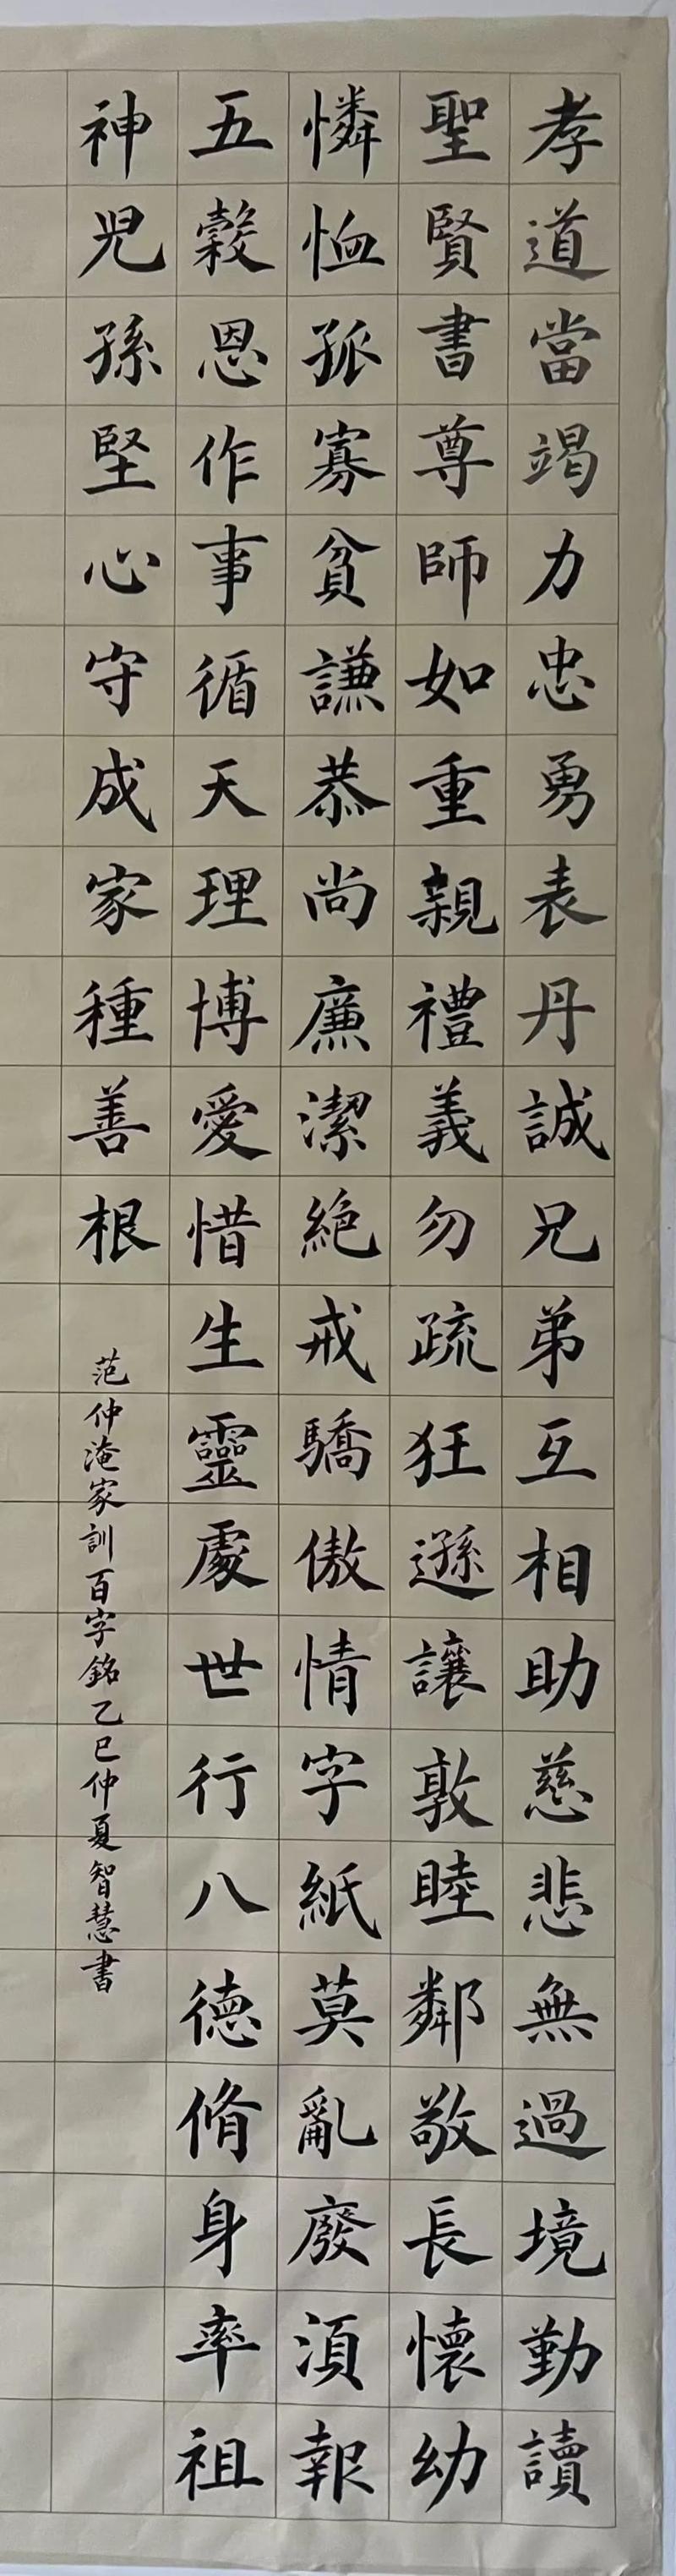 孝道當竭力忠勇表丹誠兄弟互相助慈悲無過境勤讀
聖賢書尊師如重親禮義勿疏狂遜讓敦睦鄰敬長懷幼
憐恤孤寡貧謙恭尚廉潔絕戒驕傲情字紙莫亂廢須報
五穀恩作事循天理博愛惜生靈處世行八德脩身率祖
神児孫堅心守成家種善根
范仲淹家訓百字銘乙巳仲夏智慧書